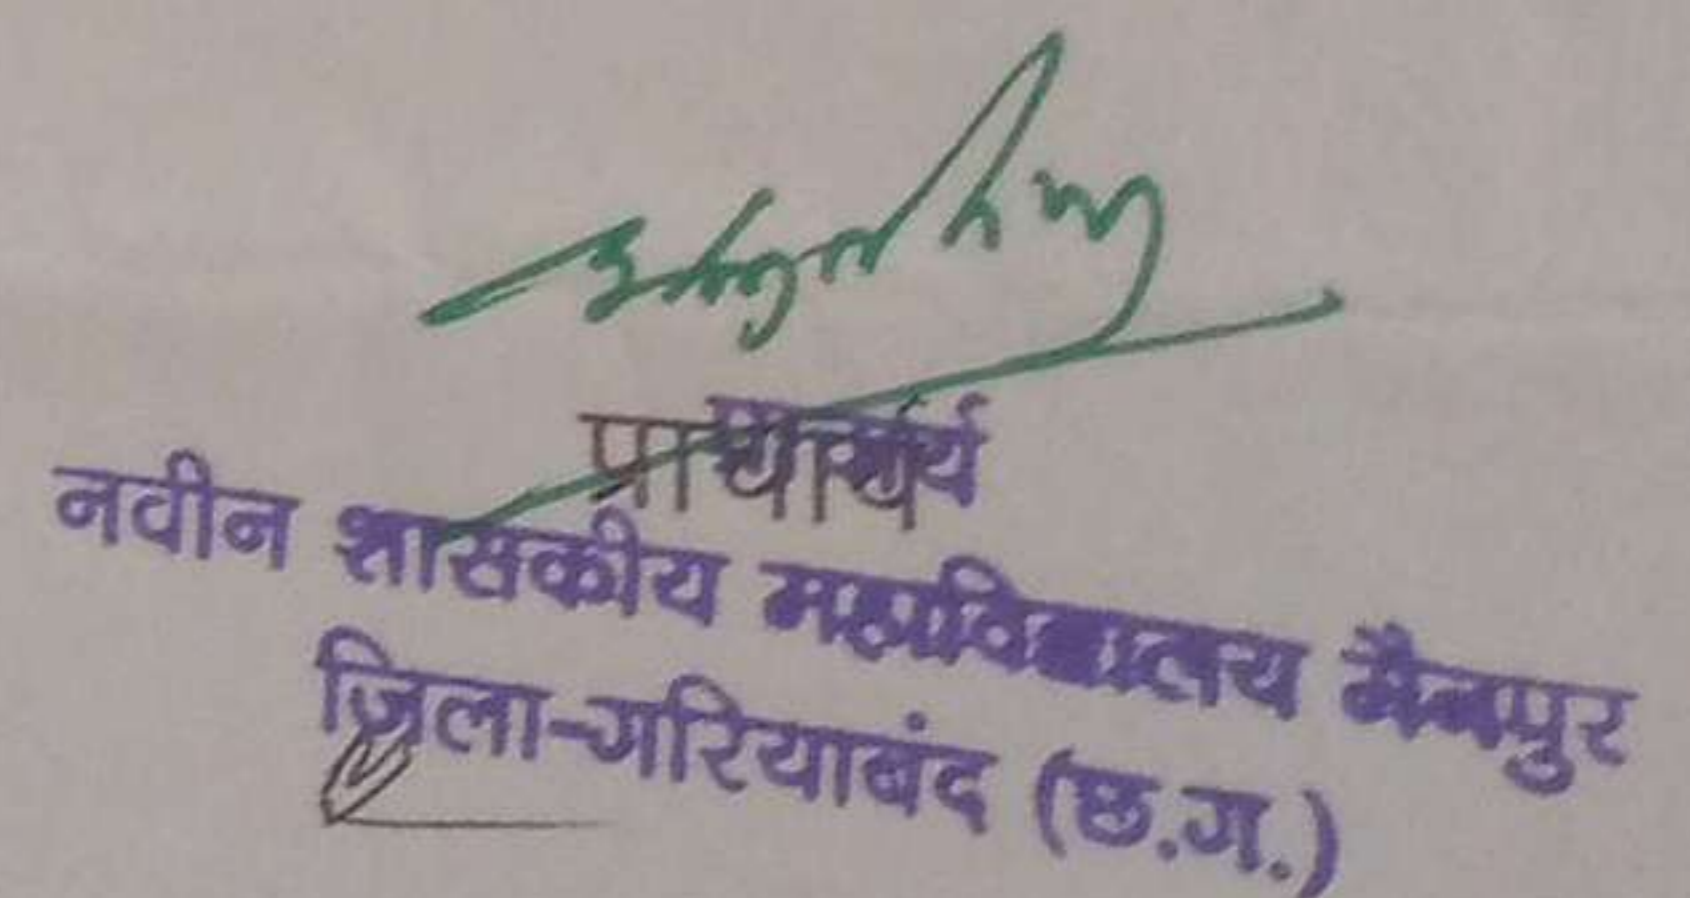 प्राचार्य
नवीन शासकीय महाविद्यालय मैनपुर
जिला-गरियाबंद (छ.ग.)